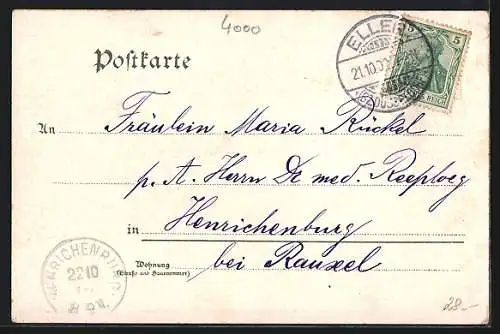 4000
Postkarte
ELLER
21.10.0
5 5
REICH
An Fräulein Maria Rückel
p. A. Herrn Dr med. Reeploeg
in Henrichenburg
Wohnung
(Straße und Hausnummer)
bei Rauxel
HENRICHENBURG
22 10
28.-